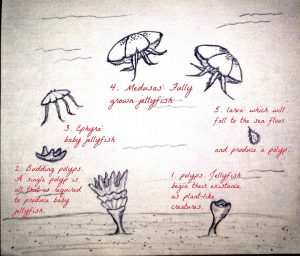 4. Medusas: Fully
grown jellyfish
3. Ephyra:
baby jellyfish
5. larea: which will
fall to the sea floor
and produce a polyp.
2. Budding polyps.
A single polyp is
all that is required
to produce baby
jellyfish.
1. polyps: Jellyfish
begin their existence
as plant-like
creatures.